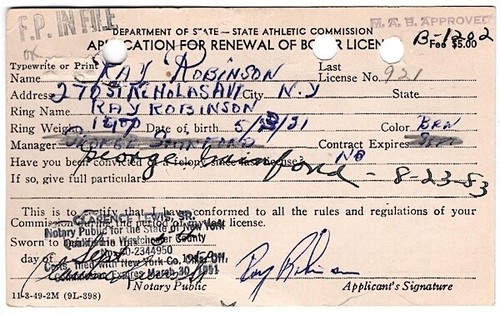 F.P. IN FILE
M.A.B. APPROVED
DEPARTMENT OF STATE—STATE ATHLETIC COMMISSION
B-1202
APPLICATION FOR RENEWAL OF BOXER LICEN Fee $5.00
OK
Typewrite or Print
Name RAY ROBINSON Last License No. 921
Address 270 ST. NICHOLAS AV City N.Y State
Ring Name RAY ROBINSON
Ring Weight 147 Date of birth 5/3/21 Color BRN
Manager George Gainford Contract Expires
Have you been convicted of a felony since last license NO
If so, give full particulars - 8-23-53
This is to certify that I have conformed to all the rules and regulations of your
Commission during the period of my last license.
CLARENCE LEVIS, JR.
Notary Public for the State of New York
Sworn to
Qualified in Westchester County
day of Sept 60-2344950
Certs. filed with New York Co. Off.
Commission Expires March 30, 1951
Ray Robinson
Notary Public Applicant's Signature
11-3-49-2M (9L-398)